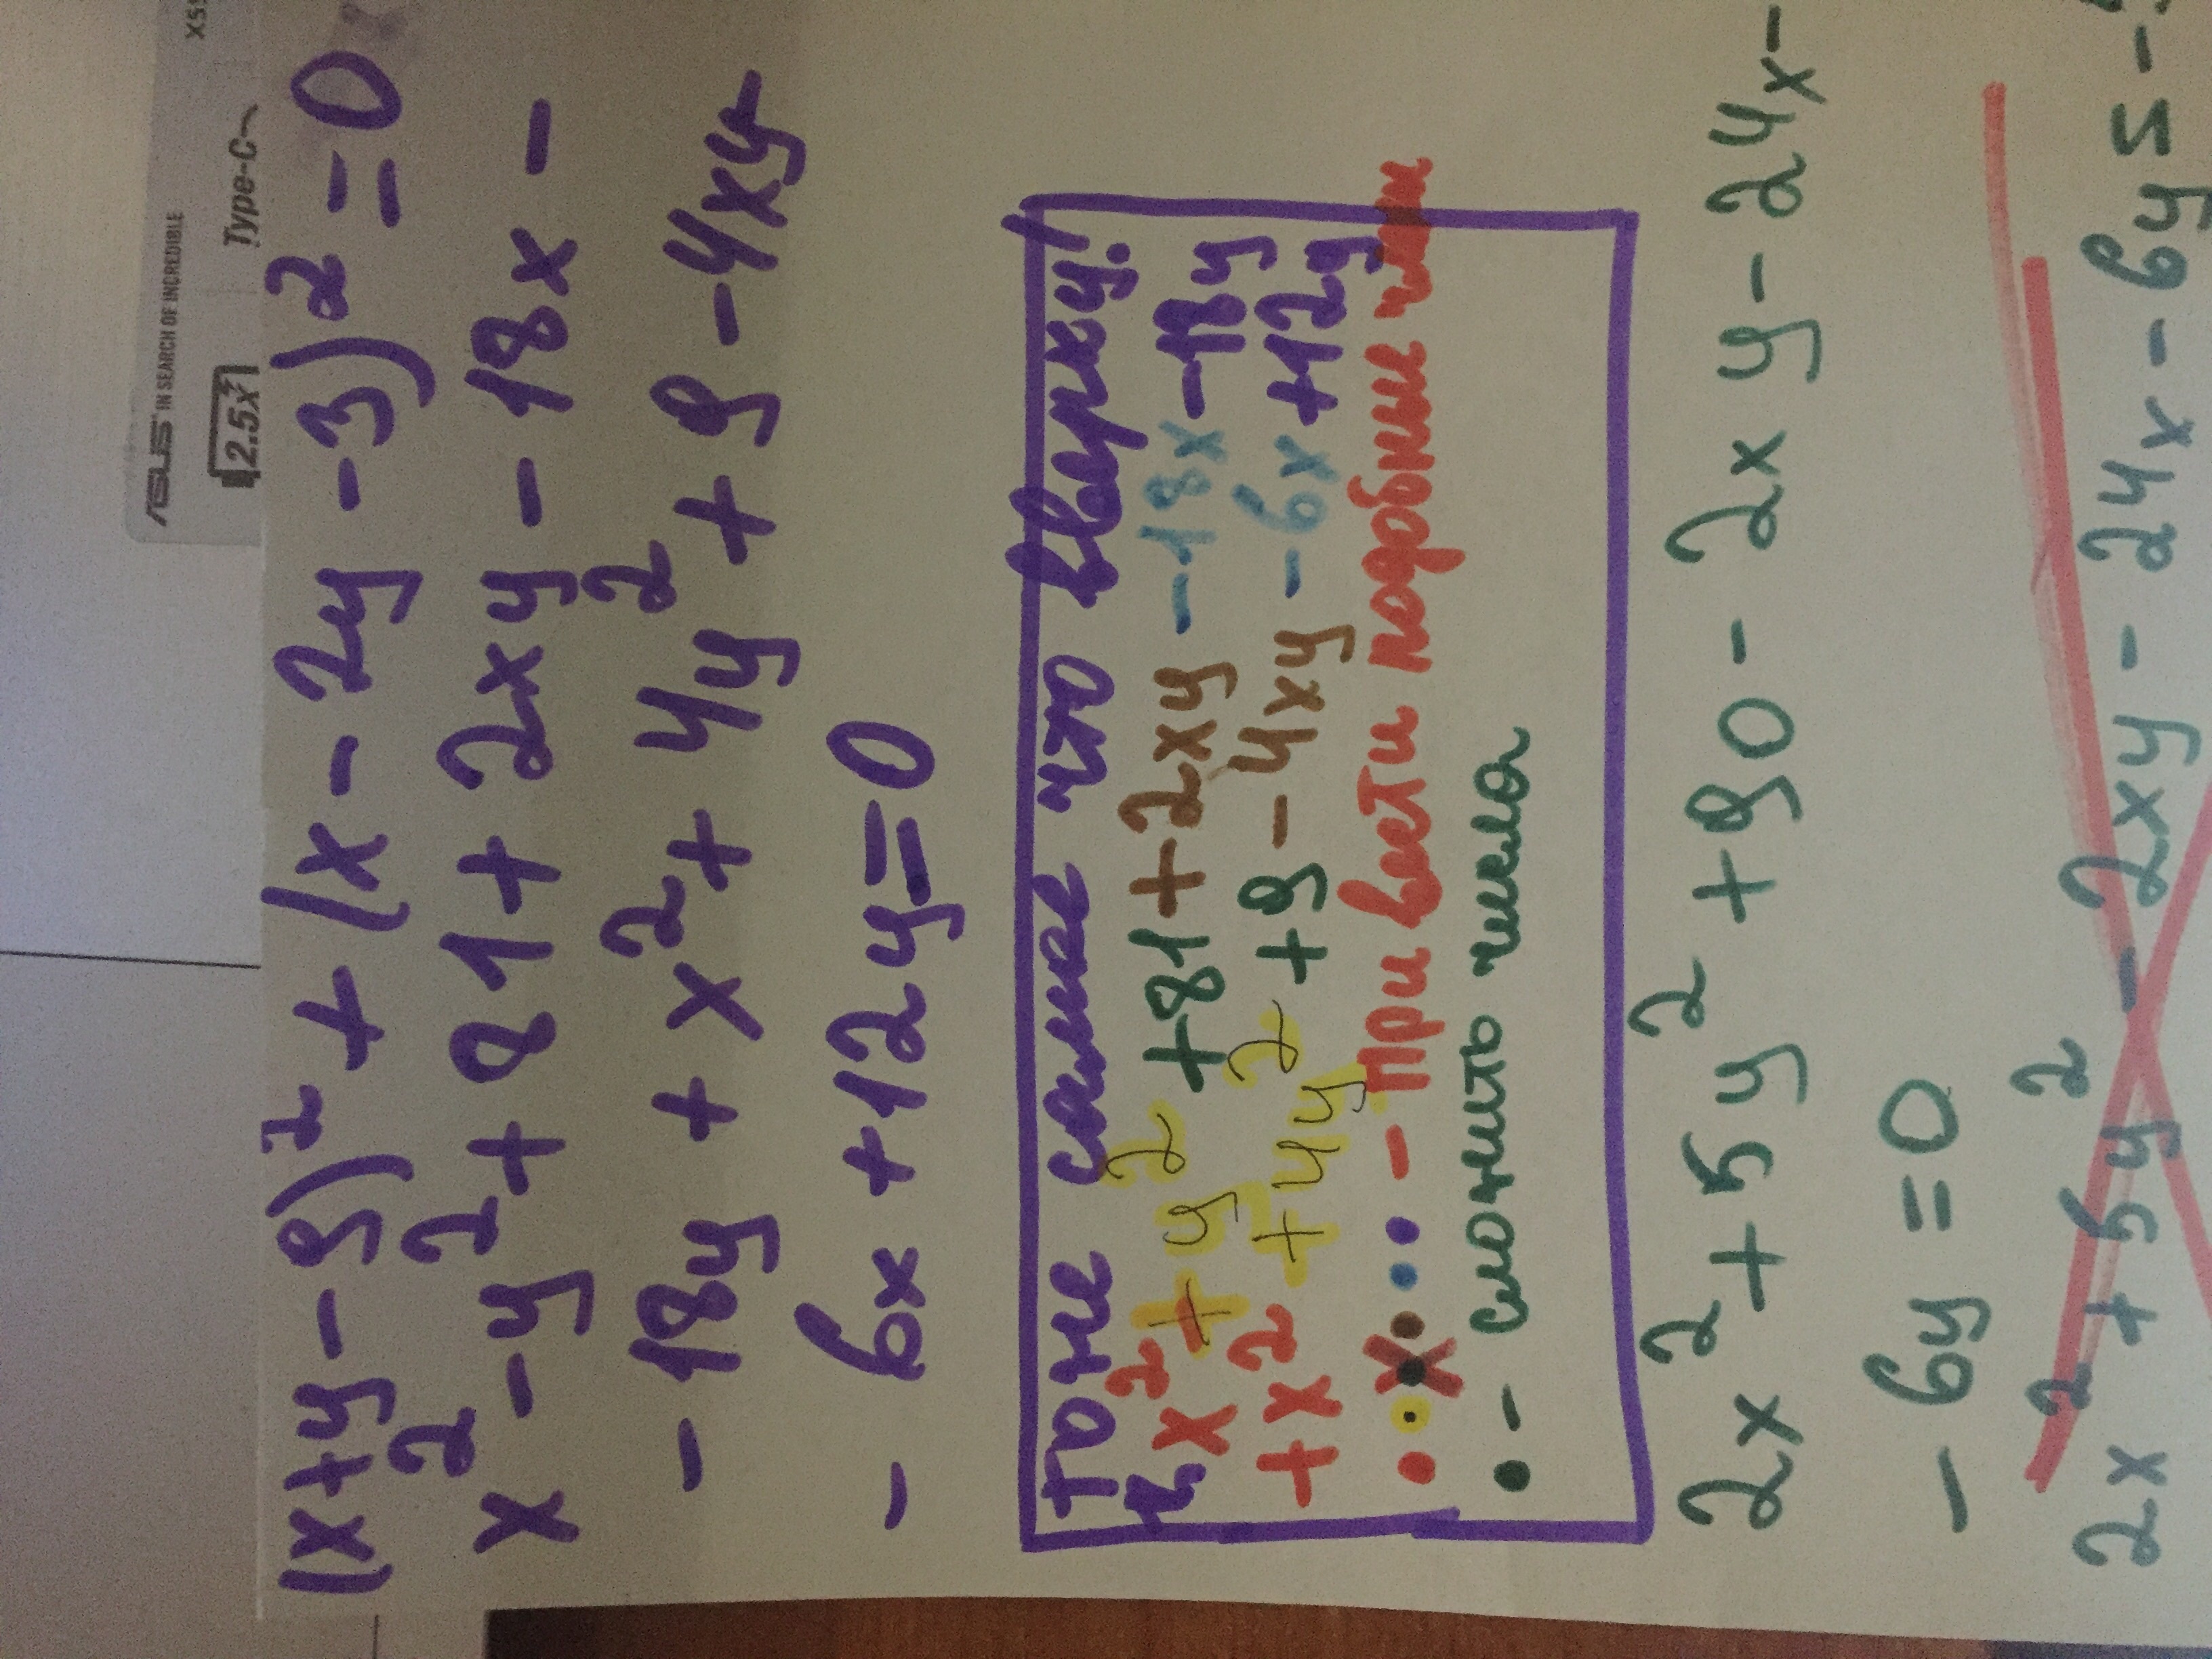 X55
ASUS IN SEARCH OF INCREDIBLE
2.5x Type-C
(x+y-9)² + (x-2y-3)² = 0
x² - y² + 81 + 2xy - 18x -
- 18y + x² + 4y² + 9 - 4xy
- 6x + 12y = 0
тоже самое что вверху!
x² + y² + 81 + 2xy - 18x - 18y
+ x² + 4y² + 9 - 4xy - 6x + 12y
- При вести подобные член
- сложить числа
2x² + 5y² + 90 - 2xy - 24x -
- 6y = 0
2x² + 5y² - 2xy - 24x - 6y = -